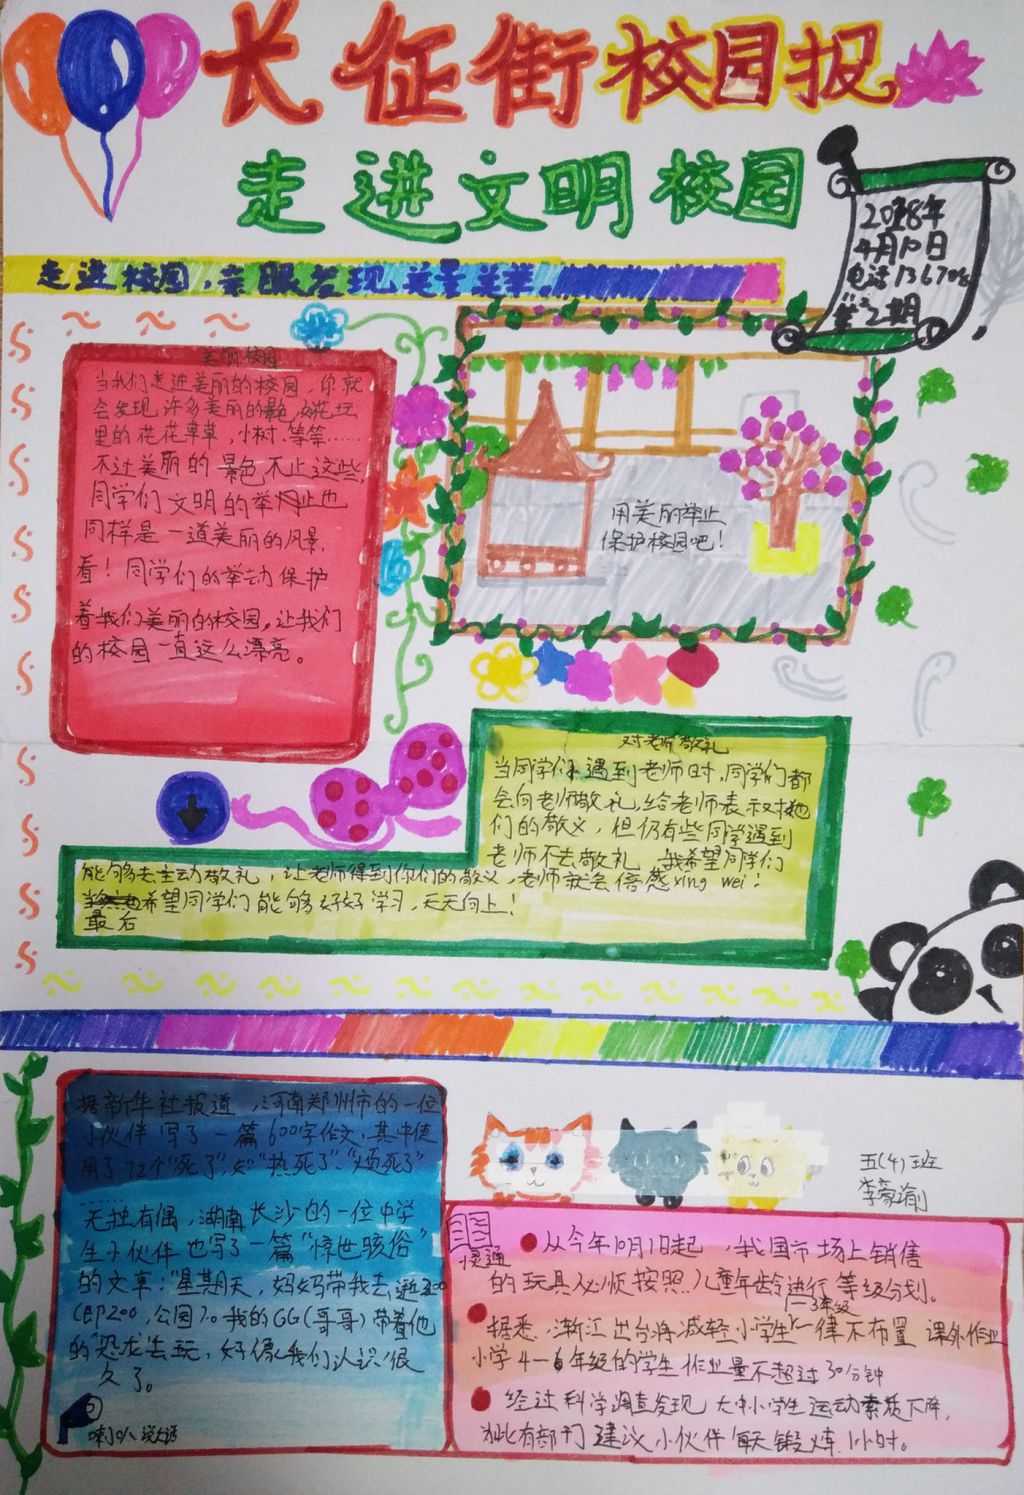 长征街校园报
走进文明校园
2018年
4月10日
电话13670
第2期
走进校园，亲眼发现美景美举。
美丽校园
当我们走进美丽的校园，你就
会发现许多美丽的景色，如花坛
里的花花草草，小树等等……
不过美丽的景色不止这些，
同学们文明的举止也
同样是一道美丽的风景，
看！同学们的举动保护
着我们美丽的校园。让我们
的校园一直这么漂亮。
用美丽举止
保护校园吧！
对老师敬礼
当同学们遇到老师时，同学们都
会向老师敬礼，给老师表示对他
们的敬义，但仍有些同学遇到
老师不去敬礼，我希望同学们
能够去主动敬礼，让老师得到你们的敬义，老师就会倍感xing wei！
希望同学们能够好好学习，天天向上！
最后
据新华社报道，河南郑州市的一位
小伙伴写了一篇600字作文，其中使
用了72个“死了”如“热死了”、“烦死了”
……
无独有偶，湖南长沙的一位中学
生小伙伴也写了一篇“惊世骇俗”
的文章：“星期天，妈妈带我去逛200
（即200，公园）。我的GG（哥哥）带着他
的“恐龙”去玩，好像我们认识很
久了。
喇叭说大话
五（4）班
李蒙渝
快通
从今年10月1日起，我国市场上销售
的玩具必须按照儿童年龄进行等级分划。
据悉，浙江出台将减轻小学生1-3年级一律不布置课外作业
小学4-6年级的学生作业量不超过30分钟
经过科学调查发现大中小学生运动素质下降，
为此有部门建议小伙伴每天锻炼1小时。